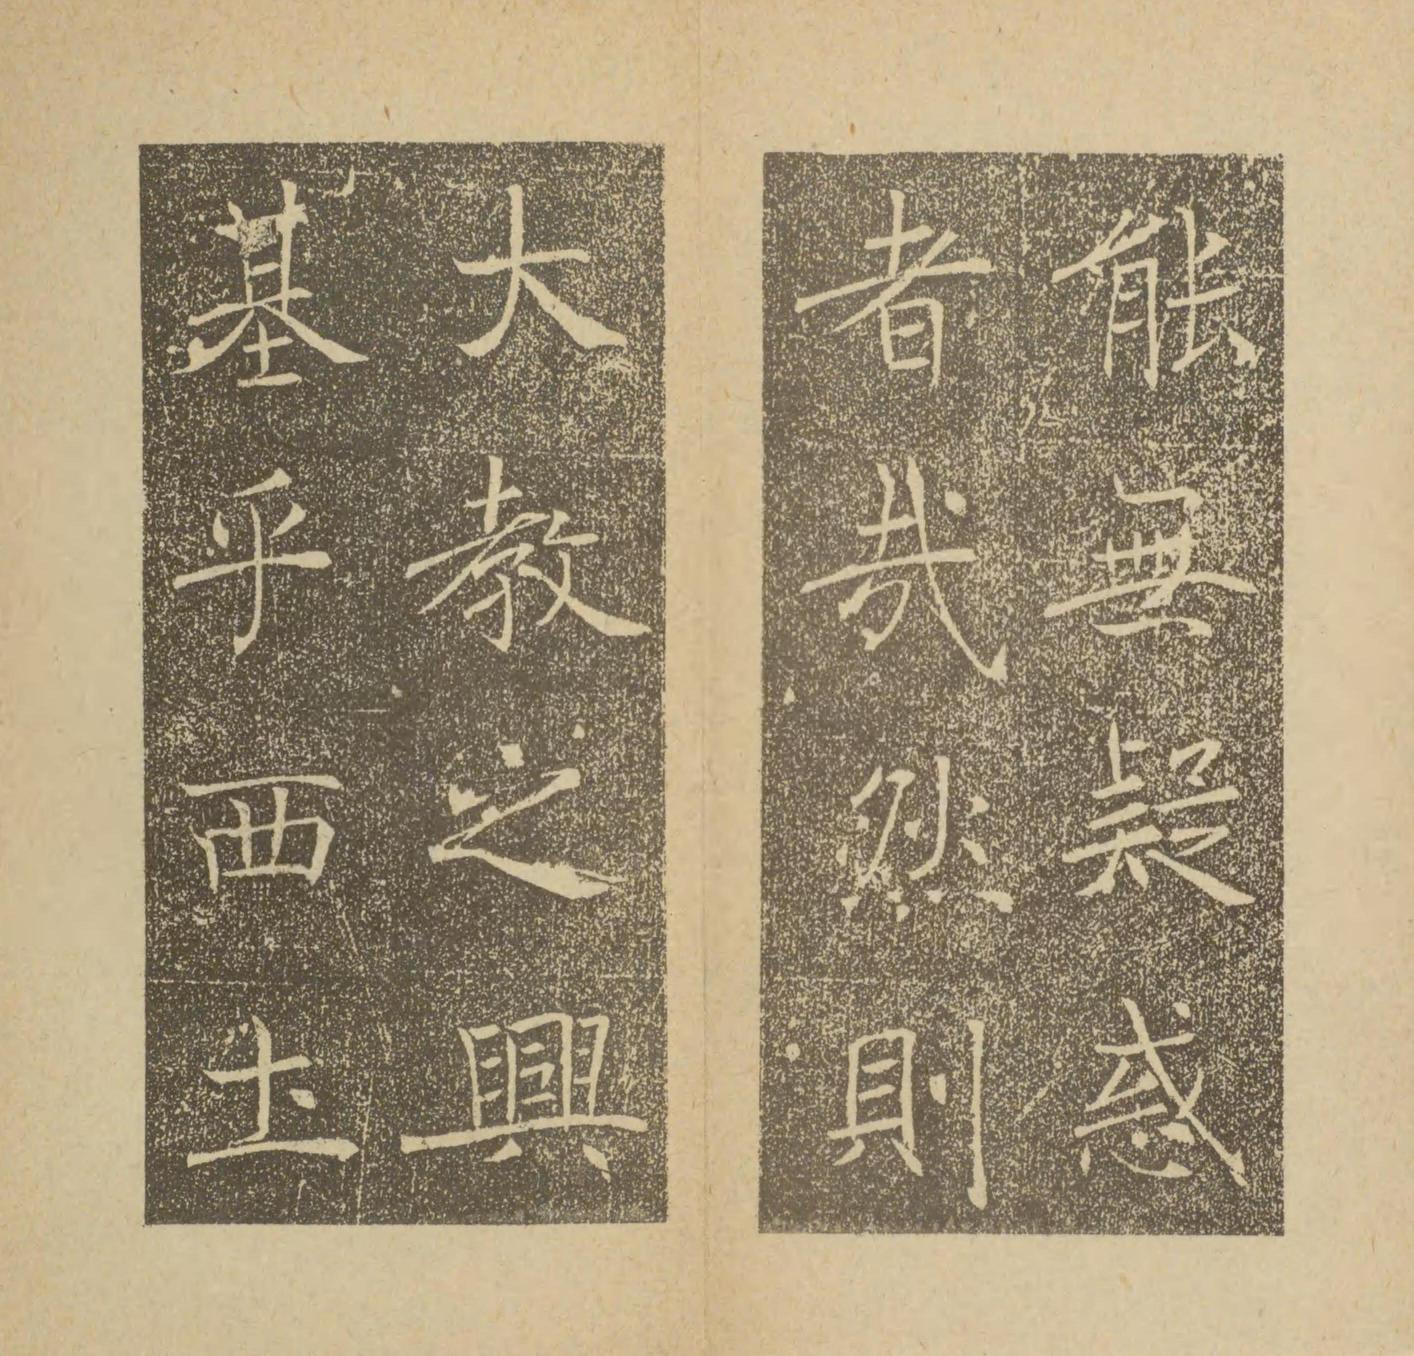 能無疑惑
者哉然則
大教之興
基乎西土